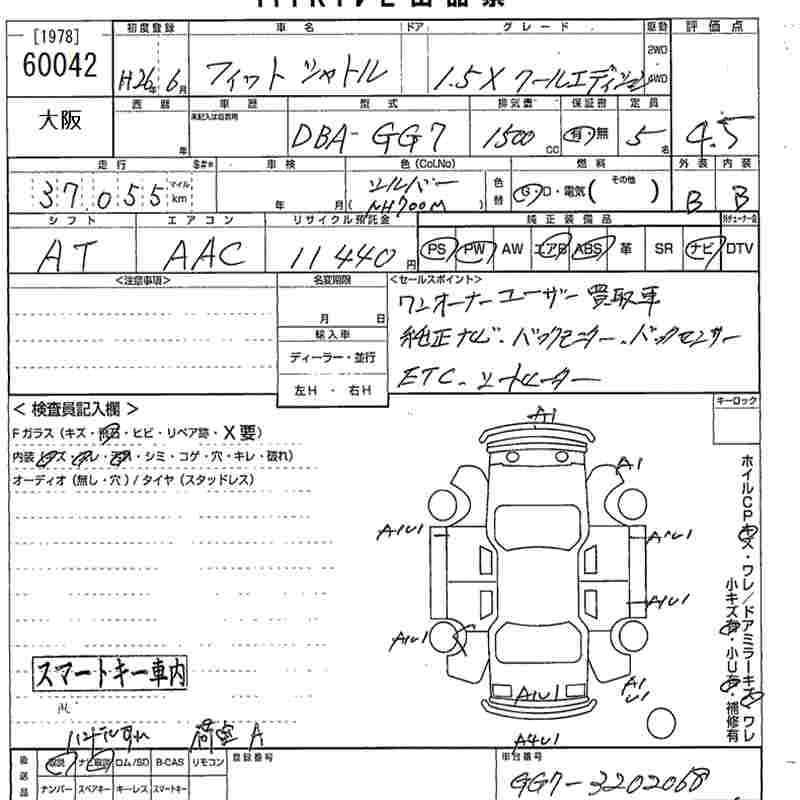 [1978]
60042
大阪
初度登録
H26年 6月
車名
フィットシャトル
ドア
グレード
1.5X クールエディション
駆動
2WD
4WD
評価点
4.5
西暦
年
車歴
未記入は自家用
型式
DBA-GG7
排気量
1500 CC
保証書
有・無
定員
5名
走行
37,055 マイル km
車検
年 月
色(Col.No)
シルバー
(NH700M)
色替
燃料
G・D・電気( その他 )
外装
B
内装
B
シフト
AT
エアコン
AAC
リサイクル預託金
11440円
純正装備品
PS PW AW エアB ABS 革 SR ナビ DTV
<注意事項>
名変期限
月 日
輸入車
ディーラー・並行
左H ・ 右H
<セールスポイント>
ワンオーナーユーザー買取車
純正ナビ・バックモニター・バックセンサー
ETC・シートヒーター
キーロック
<検査員記入欄>
Fガラス(キズ・飛石・ヒビ・リペア跡・X要)
内装(キズ・スレ・汚れ・シミ・コゲ・穴・キレ・破れ)
オーディオ(無し・穴)/タイヤ(スタッドレス)
スマートキー車内
ハンドルすれ
荷室 A
A1
A1
A1U1
A1U1
A1U1
A1U1
A1U1
A1
U1
A4U1
ホイルCPキズ・ワレ/ドアミラーキズ・ワレ
小キズ有・小U有・補修有
後送品
取説 ナビ取説 ロム/SD B-CAS リモコン
ナンバー スペアキー キーレス スマートキー
登録番号
車台番号
GG7-3202068